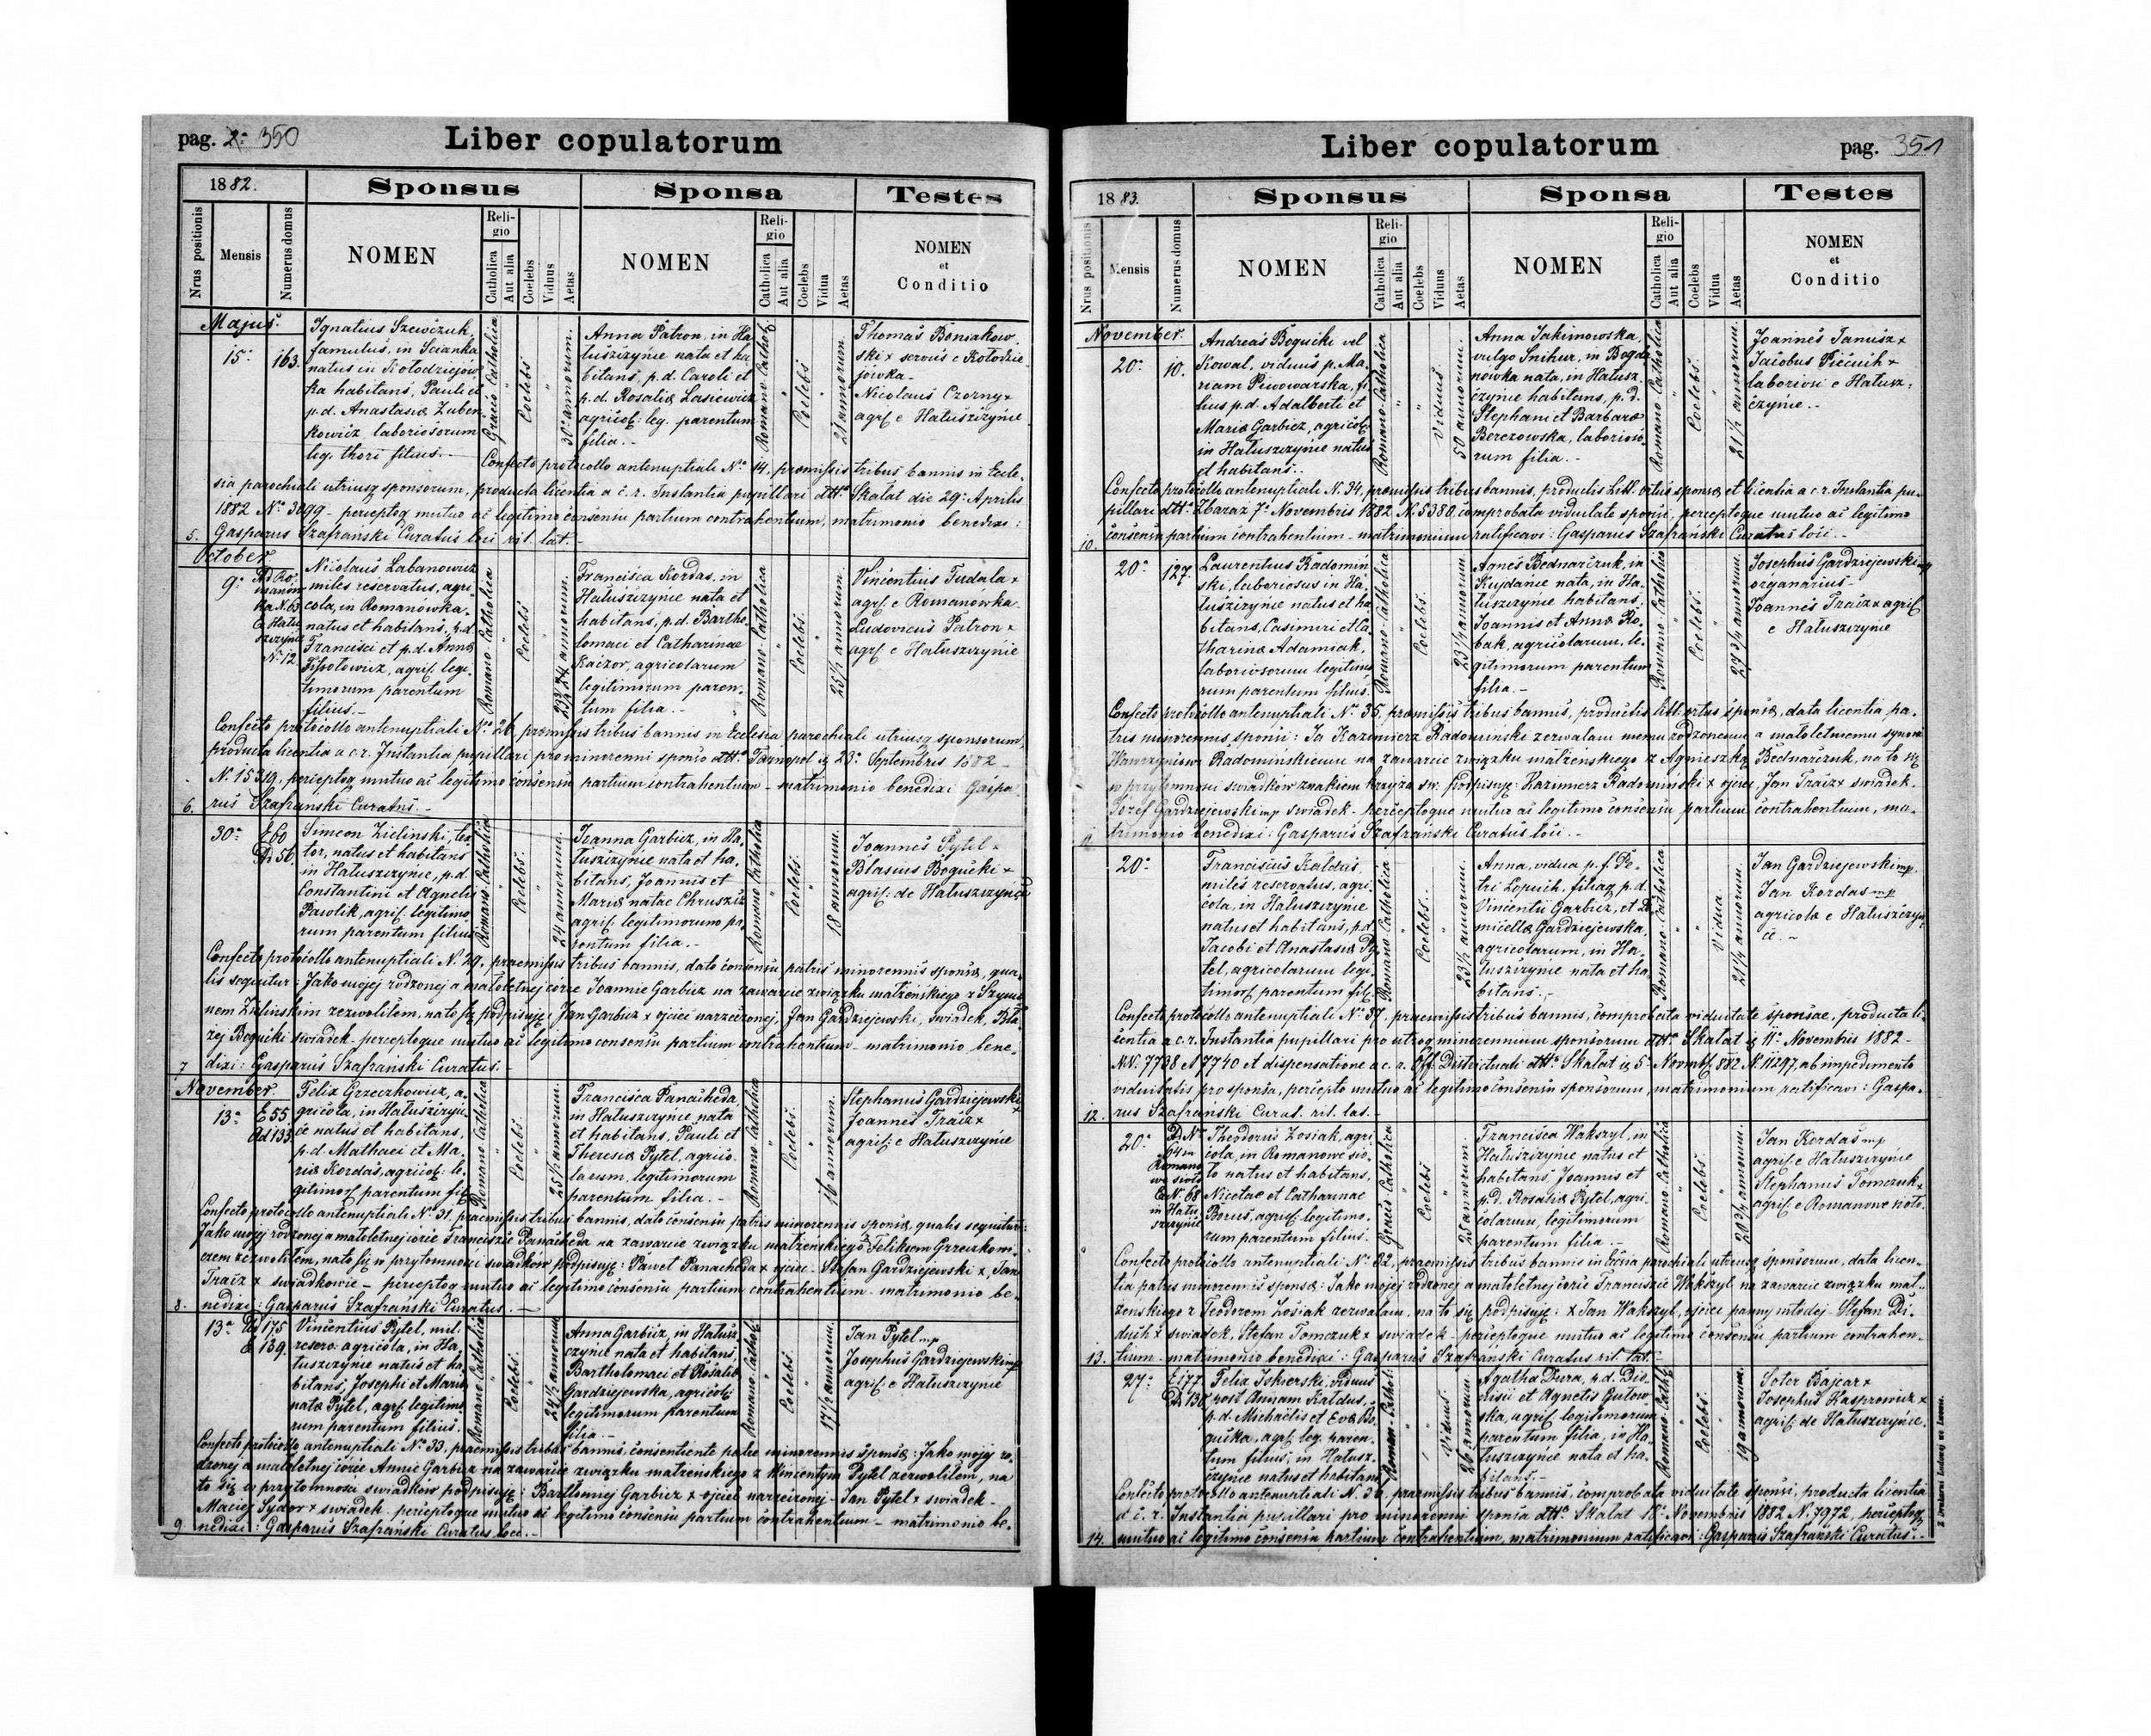 pag. 2. 350
Liber copulatorum
1882.
Sponsus
Sponsa
Testes
Nrus positionis
Mensis
Numerus domus
NOMEN
Religio
Catholica
Aut alia
Coelebs
Viduus
Aetas
NOMEN
Religio
Catholica
Aut alia
Coelebs
Vidua
Aetas
NOMEN
et
Conditio
Majus.
15a
163.
Ignatius Szewczuk,
famulus, in Scianka
natus in Kołodziejów-
ka habitans, Pauli et
p.d. Anastasiæ Zuber-
kowicz laboriosorum
leg. thori filius.
Græco-Catholica
Coelebs
30 annorum.
Anna Patron, in Ha-
łuszczyńce nata et ha-
bitans, p.d. Caroli et
p.d. Rosaliæ Lasiewicz
agricol: leg. parentum
filia.
Romano-Cathol:
Coelebs
21 annorum.
Thomas Boniakow-
ski x servus e Kołodzie-
jówka
Nicolaus Czorny x
agrf. e Hałuszczyńce
Confecto protocollo antenuptiali No 14, præmissis tribus bannis in Eccle-
sia parochiali utriusq sponsorum, producta licentia a c.r. Instantia pupillari dtto Skałat die 29a Aprilis
1882 No 3099 - perceptoq mutuo ac legitimo consensu partium contrahentium, matrimonio benedixi:
5. Gasparus Szafranski Curatus loci rit. lat.
October
9a
Ad Ro-
manow-
ka N. 63
E Hału-
szczyńce
No 12
Nicolaus Labanowicz
miles reservatus, agri-
cola, in Romanowka
natus et habitans, p.d.
Francisci et p.d. Annæ
agrif. legi-
timorum parentum
filius.
Romano-Catholica
Coelebs
annorum
Francisca Kordas, in
Hałuszczyńce nata et
habitans, p.d. Bartho-
lomaei et Catharinae
Kaczor, agricolarum
legitimorum paren-
tum filia.
Romano-Catholica
Coelebs
25 1/2 annorum
Vincentius Tudala x
agrf. e Romanówka
Ludovicus Patron x
agrf. e Hałuszczyńce
Confecto protocollo antenuptiali Nro 26, præmissis tribus bannis in Ecclesia parochiali utriusq sponsorum,
producta licentia a c.r. Instantia pupillari pro minorenni sponso dtto Tarnopol 23a Septembris 1882
N. 15319, perceptoq mutuo ac legitimo consensu partium contrahentium - matrimonio benedixi Gaspa-
6. rus Szafranski Curatus.
30a
E 60
D 56
Simeon Zielinski, tex-
tor, natus et habitans
in Hałuszczyńce, p.d.
Constantini et Agnetis
Pawlik, agrif. legitimo-
rum parentum filius
Romano-Catholica
Coelebs
24 annorum
Joanna Garbicz, in Ha-
łuszczyńce nata et ha-
bitans, Joannis et
Mariæ natae Chruszcz
agrif. legitimorum pa-
rentum filia.
Romano-Catholica
Coelebs
18 annorum.
Joannes Pytel x
Blasius Bogucki x
agrif: de Hałuszczyńce
Confecto protocollo antenuptiali N. 29, praemissis tribus bannis, dato consensu patris minorennis sponsæ, qua-
lis sequitur: Jako mojej rodzonej a małoletniej córce Joannie Garbicz na zawarcie związku małżeńskiego z Szymo-
nem Zielinskim zezwoliłem, na to się podpisuję: Jan Garbicz x ojciec narzeczonej, Jan Gardziejewski, świadek, Bła-
żej Bogucki świadek - perceptoque mutuo ac legitimo consensu partium contrahentium - matrimonio bene-
7 dixi: Gasparus Szafranski Curatus.
November.
13a
E 55
Ad 133
Felix Grzeczkowicz, a-
gricola, in Hałuszczyń-
ce natus et habitans,
p.d. Mathaei et Ma-
riæ Kordas, agricol: le-
gitimorf parentum fil.
Romano-Catholica
Coelebs
25 1/2 annorum.
Francisca Panacheda,
in Hałuszczyńce nata
et habitans, Pauli et
Theresiæ Pytel, agrico-
larum, legitimorum
parentum filia.
Romano-Catholica
Coelebs
16 annorum.
Stephanus Gardziejewski x
Joannes Traiz x
agrif: e Hałuszczyńce
Confecto protocollo antenuptiali No 31, praemissis tribus bannis, dato consensu patris minorennis sponsæ, qualis sequitur:
Jako mojej rodzonej a małoletniej córce Franciszce Panacheda na zawarcie związku małżenskiego z Feliksem Grzeczkowi-
czem zezwoliłem, na to się w przytomności świadków podpisuję: Paweł Panacheda x ojciec - Stefan Gardziejewski x, Jan
Traiz x świadkowie - perceptoq mutuo ac legitimo consensu partium contrahentium - matrimonio be-
8. nedixi: Gasparus Szafrański Curatus.
13a
Ad 175
E 139
Vincentius Pytel, mil:
reserv: agricola, in Ha-
łuszczyńce natus et ha-
bitans, Josephi et Mariæ
natæ Pytel, agrf. legitimo-
rum parentum filius.
Romano-Catholica
Coelebs
24 1/2 annorum
Anna Garbicz, in Hałusz-
czyńce nata et habitans
Bartholomaei et Rosaliæ
Gardziejewska, agricol:
legitimorum parentum
filia.
Romano-Cathol:
Coelebs
17 1/2 annorum
Jan Pytel mp
Josephus Gardziejewski mp
agrif. e Hałuszczyńce
Confecto protocollo antenuptiali No 33, praemissis tribus bannis, consentiente patre minorennis sponsæ: Jako mojej ro-
dzonej a małoletniej córce Annie Garbicz na zawarcie związku małżenskiego z Wincentym Pytel zezwoliłem, na
to się w przytomności świadków podpisuję: Bartłomiej Garbicz x ojciec narzeczonej - Jan Pytel x świadek -
Maciej Sydor x świadek - perceptoque mutuo ac legitimo consensu partium contrahentium - matrimonio be-
9 nedixi: Gasparus Szafranski Curatus loci.
Liber copulatorum
pag. 351
1883.
Sponsus
Sponsa
Testes
Nrus positionis
Mensis
Numerus domus
NOMEN
Religio
Catholica
Aut alia
Coelebs
Viduus
Aetas
NOMEN
Religio
Catholica
Aut alia
Coelebs
Vidua
Aetas
NOMEN
et
Conditio
November.
20a
10.
Andreas Bogucki vel
Kowal, viduus p. Ma-
riam Piwowarska, fi-
lius p.d. Adalberti et
Mariæ Garbicz, agricol:
in Hałuszczyńce natus
et habitans.
Romano-Catholica
Viduus
50 annorum.
Anna Jakimowska,
vulgo Snihur, in Bogda-
nówka nata, in Hałusz-
czyńce habitans, p.d.
Stephani et Barbaræ
Berezowska, laborioso-
rum filia.
Romano-Catholica
Coelebs.
21 1/2 annorum.
Joannes Janusz x
Jacobus Piccuch x
laboriosi e Hałusz-
czyńce.
Confecto protocollo antenuptiale N. 34, præmissis tribus bannis, productis Litt. ortus sponsæ et licentia a c.r. Instantia pu-
pillari dtto Zbaraż 7a Novembris 1882 N. 5380, comprobata viduitate sponsi, perceptoque mutuo ac legitimo
10. consensu partium contrahentium - matrimonium ratificavi: Gasparus Szafrański Curatus loci.
20a
127.
Laurentius Radomin-
ski, laboriosus in Ha-
łuszczyńce natus et ha-
bitans, Casimiri et Ca-
tharinæ Adamiak,
laboriosorum legitimo-
rum parentum filius.
Romano-Catholica
Coelebs.
annorum.
Agnes Bednarczuk, in
Kujdańce nata, in Ha-
łuszczyńce habitans,
Joannis et Annæ Ro-
bak, agricolarum, le-
gitimorum parentum
filia.
Romano-Catholica
Coelebs.
29 3/4 annorum.
Josephus Gardziejewski mp
organarius
Joannes Traiz x agrif
e Hałuszczyńce
Confecto protocollo antenuptiali No 35, præmissis tribus bannis, productis litt. ortus sponsæ, data licentia pa-
tris minorennis sponsi: Ja Kazimierz Radominski zezwalam memu rodzonemu a małoletniemu synowi
Wawrzyńcowi Radomińskiemu na zawarcie związku małżenskiego z Agnieszką Bednarczuk, na to się
w przytomności świadków znakiem krzyża św. podpisuję: Kazimierz Radomiński x ojciec, Jan Traiz x swiadek,
Józef Gardziejewski mp swiadek - perceptoque mutuo ac legitimo consensu partium contrahentium, ma-
11. trimonio benedixi: Gasparus Szafranski Curatus loci.
20a
Franciscus Kałdus,
miles reservatus, agri-
cola, in Hałuszczyńce
natus et habitans, p.d.
Jacobi et Anastasiæ Py-
tel, agricolarum legi-
timorf parentum fil.
Romano-Catholica
Coelebs.
23 1/2 annorum.
Anna, vidua p. f. Pe-
tri Łopuch, filiaq p.d.
Vincentii Garbicz, et Do-
micellæ Gardziejewska,
agricolarum, in Ha-
łuszczyńce nata et ha-
bitans.
Romano-Catholica
Vidua.
21 1/4 annorum.
Jan Gardziejewski mp.
Jan Kordas mp
agricolæ e Hałuszczyń-
ce.
Confecto protocollo antenuptiali No 37, praemissis tribus bannis, comprobata viduitate sponsae, producta li-
centia a c.r. Instantia pupillari pro utroq minorennium sponsorum dtto Skałat 11a Novembris 1882 -
NN. 7738 et 7740 et dispensatione a c.r. Off. Districtuali dtto Skałat 5a Novmbf. 882 N. 11297, ab impedimento
viduitatis pro sponsa, percepto mutuo ac legitimo consensu sponsorum, matrimonium ratificavi: Gaspa-
12. rus Szafrański Curat. rit. lat.
20a
D No
64 in
Romano-
we sioło
E N. 68
in Hału-
szczyńce
Theodorus Łosiak, agri-
cola, in Romanowe sio-
ło natus et habitans,
Nicetae et Catharinae
Borus, agrif. legitimo-
rum parentum filius.
Græco-Catholica
Coelebs
25 annorum.
Francisca Wakszyl, in
Hałuszczyńce natus et
habitans, Joannis et
p.d. Rosaliæ Pytel, agri-
colarum, legitimorum
parentum filia.
Romano-Catholica
Coelebs
20 3/4 annorum.
Jan Kordas mp
agrif. e Hałuszczyńce
Stephanus Tomczuk x
agrif. e Romanowe sioło.
Confecto protocollo antenuptiali No 32, praemissis tribus bannis in Ecclesia parochiali utriusq sponsorum, data licen-
tia patris minorennis sponsæ: Jako mojej rodzonej a małoletniej córce Franciszce Wakszyl na zawarcie związku mał-
żenskiego z Teodorem Łosiak zezwalam, na to się podpisuję: x Jan Wakszyl, ojciec panny młodej - Stefan Di-
duch x swiadek, Stefan Tomczuk x swiadek - perceptoque mutuo ac legitimo consensu partium contrahen-
13. tium - matrimonio benedixi: Gasparus Szafrański Curatus rit. lat.
27a
E 177
D 130
Felix Iskierski, viduus
post Annam Kałdus,
p.d. Michaelis et Evæ Bo-
gucka, agrf. leg. paren-
tum filius, in Hałusz-
czyńce natus et habitans
Roman-Cathol:
Viduus
26 annorum.
Agatha Dura, p.d. Dio-
nisii et Agnetis Gutow-
ska, agrif. legitimorum
parentum filia, in Ha-
łuszczyńce nata et ha-
bitans.
Romano-Cathol
Coelebs.
19 annorum.
Soter Bajcar x
Josephus Kasprowicz x
agrif. de Hałuszczyńce.
Confecto protocollo antenuptiali N. 36, praemissis tribus bannis, comprobata viduitate sponsi, producta licentia
a c.r. Instantia pupillari pro minorenni sponsa dtto Skałat 18a Novembris 1882 N. 7972, perceptoq
14. mutuo ac legitimo consensu partium contrahentium, matrimonium ratificavi: Gasparus Szafrański Curatus.
Z Drukarni Ludowej we Lwowie.